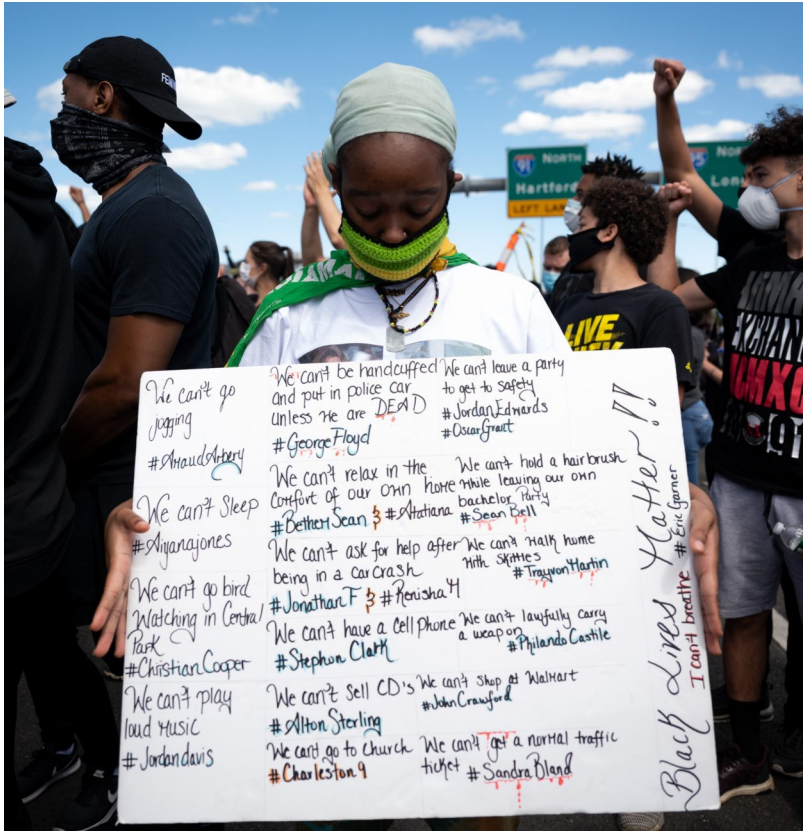 FEM
91
NORTH
Hartford
LEFT LAN
NORTH
LIVE
EXCHAN
We can't go
jogging
#AmaudArbery
We can't Sleep
#Aiyanajones
We can't go bird
Watching in Central
Park
#ChristianCooper
We can't play
loud music
#Jordandavis
We can't be handcuffed
and put in police car
unless we are DEAD
#GeorgeFloyd
We can't relax in the
comfort of our own home
#BothemSean & #Atatiana
We can't ask for help after
being in a car crash
#JonathanF & #RenishaM
We can't have a cell phone
#Stephon Clark
We can't sell CD's
#Alton Sterling
We cant go to church
#Charleston9
We can't leave a party
to get to safety
#JordanEdwards
#OscarGrant
We can't hold a hairbrush
while leaving our own
bachelor Party
#Sean Bell
We can't walk home
with skittles
#TrayvonMartin
We can't lawfully carry
a weapon
#PhilandoCastile
We can't shop at Walmart
#JohnCrawford
We can't get a normal traffic
ticket #SandraBland
Black Lives Matter!!
I can't breathe #Eric Garner